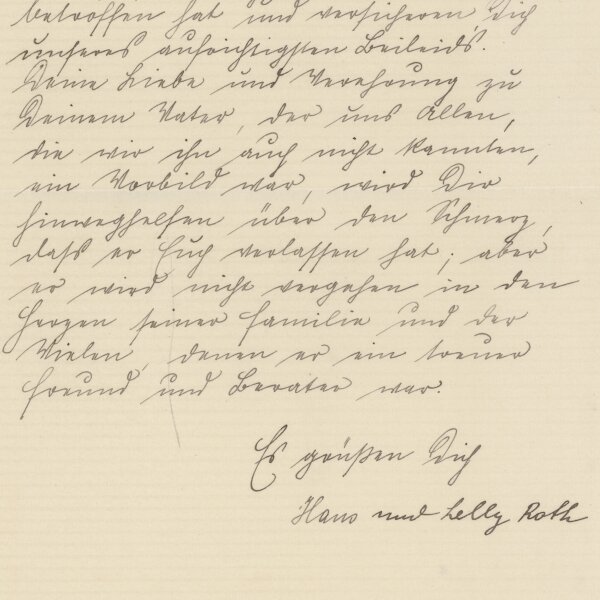 betroffen hat und versicheren Dich
unseres aufrichtigsten Beileids.
Deine Liebe und Verehrung zu
Deinem Vater, der uns Allen,
die wir ihn auch nicht kannten,
ein Vorbild war, wird Dir
hinweghelfen über den Schmerz,
dass er Euch verlassen hat; aber
er wird nicht vergehen in den
Herzen seiner Familie und der
Vielen, denen er ein treuer
Freund und Berater war.
Es grüßen Dich
Hans und Lelly Roth